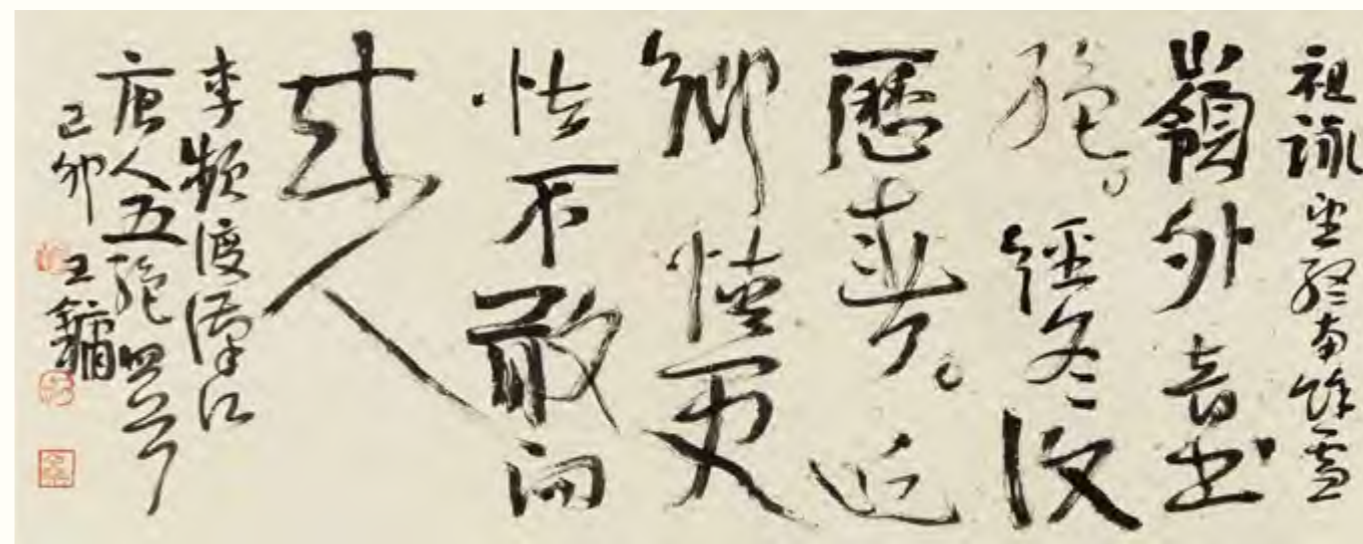 祖詠望終南餘雪
嶺外音書
絕。經冬復
歷春。近
鄉情更
怯不敢問
來人
李頻渡漢江
唐人五絕四首
己卯王鏞